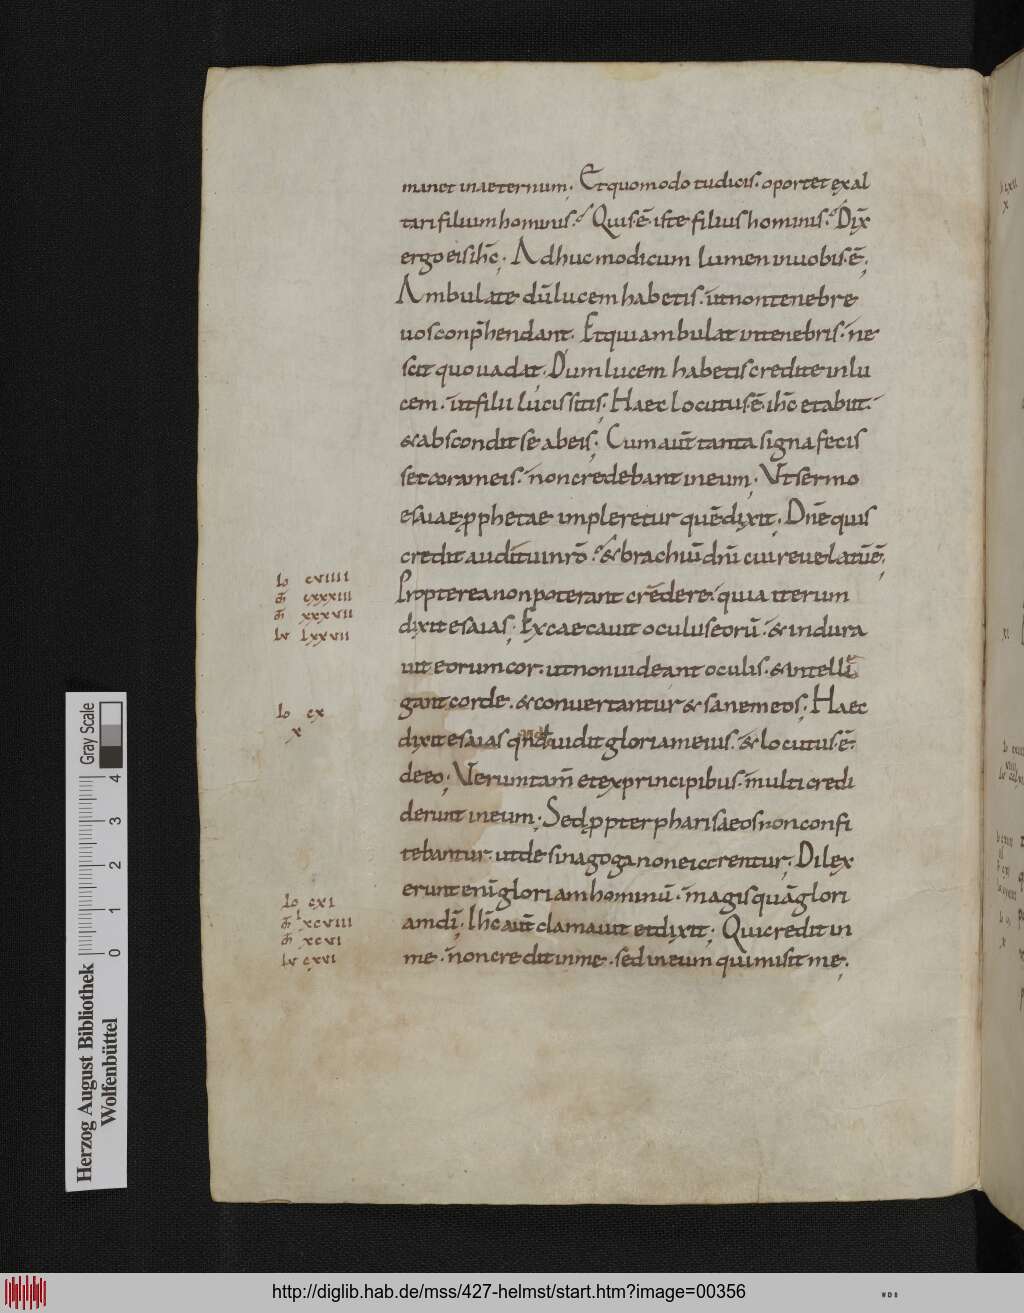 manet inaeternum; Et quomodo tu dicis· oportet exal
tari filium hominis? Quis ē iste filius hominis? Dix̄
ergo eis ih̄c; Adhuc modicum lumen in uobis ē;
Ambulate dū lucem habetis· ut non tenebre
uos conp̄hendant· Et qui ambulat in tenebris· ne
scit quo uadat; Dum lucem habetis credite in lu
cem· ut filii lucis sitis; Haec locutus ē ih̄c et abiit·
& abscondit se ab eis; Cum aut̄ tanta signa fecis
set coram eis· non credebant in eum; Ut sermo
esaiae ꝓphetae impleretur quē dixit; Dn̄e quis
credit auditui nr̄o? & brachiū dn̄i cui reuelatū ē;
Propterea non poterant crēdere· quia iterum
dixit esaias; Excaecauit oculus eorū· & indura
uit eorum cor· ut non uideant oculis· & intelli
gant corde· & conuertantur & sanem eos; Haec
dixit esaias qn̄d uidit gloriam eius· & locutus ē
de eo; Uerumtam̄ et ex principibus· multi credi
derunt in eum; Sed ꝓpter pharisaeos non confi
tebantur· ut de sinagoga non eicerentur; Dilex
erunt enī gloriam hominū· magis quā glori
am dī; Ih̄c aut̄ clamauit et dixit; Qui credit in
me· non credit in me· sed in eum qui misit me;
Io cuiiii
m̄ cxxxiii
m̄ xxxvii
lu lxxvii
Io cx
x
Io cxi
m̄ xcviii
m̄ xcvi
lu cxvi
Herzog August Bibliothek
Wolfenbüttel
0 1 2 3 4
Gray Scale
http://diglib.hab.de/mss/427-helmst/start.htm?image=00356